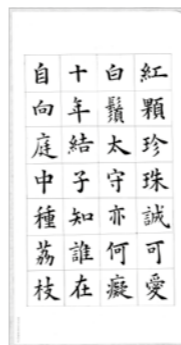 紅顆珍珠誠可愛
白鬚太守亦何癡
十年結子知誰在
自向庭中種荔枝